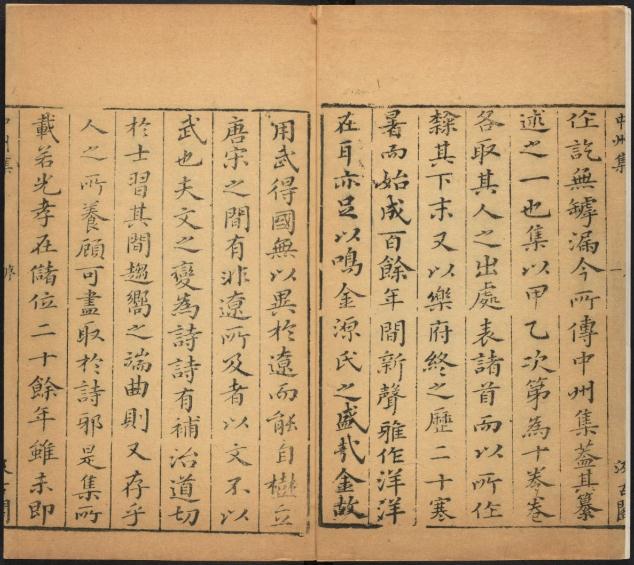 中州集
一
汲古閣
作訖無罅漏今所傳中州集蓋其纂
述之一也集以甲乙次第為十卷卷
各取其人之出處表諸首而以所作
隸其下末又以樂府終之歷二十寒
暑而始成百餘年間新聲雅作洋洋
在耳亦足以鳴金源氏之盛哉金故
用武得國無以異於遼而能自樹立
唐宋之間有非遼所及者以文不以
武也夫文之變為詩詩有補治道切
於士習其間趨嚮之端曲則又存乎
人之所養顧可盡取於詩邪是集所
載若光孝在儲位二十餘年雖未即